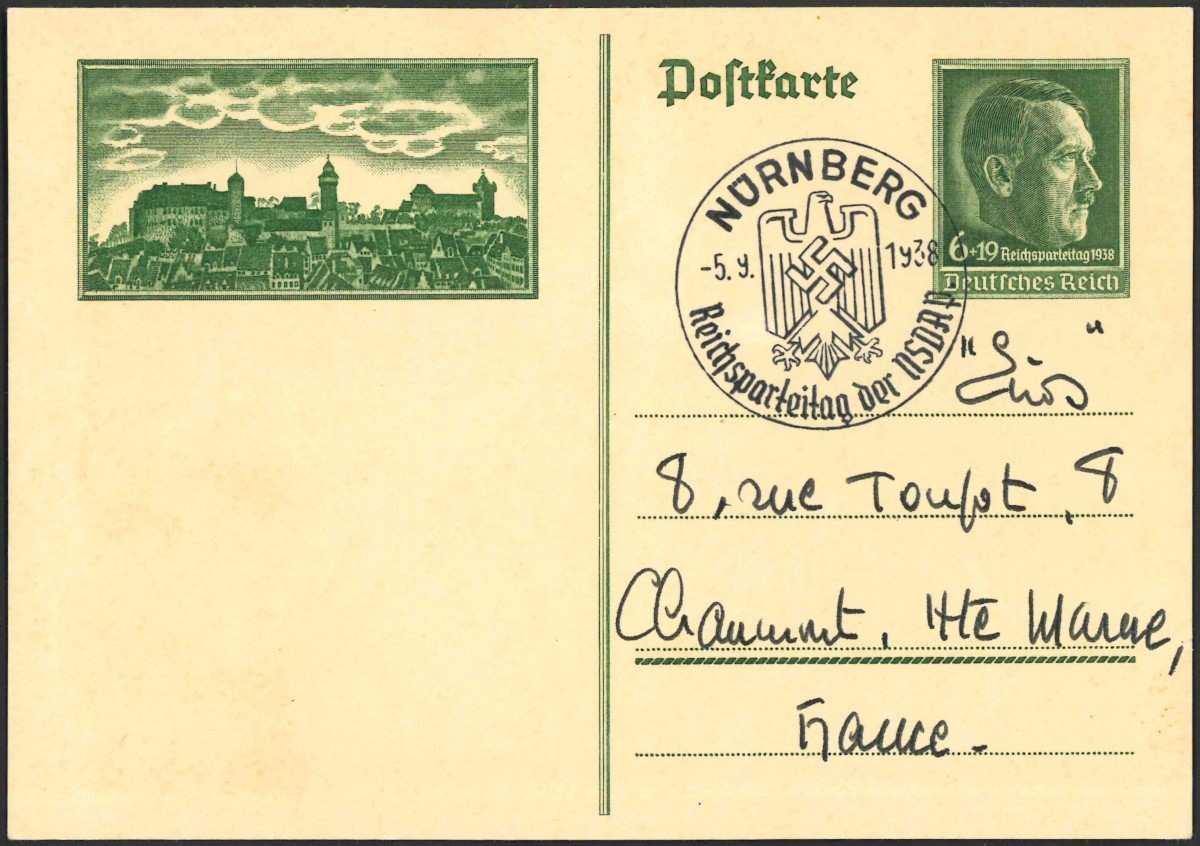 Postkarte
6+19 Reichsparteitag 1938
Deutsches Reich
NÜRNBERG
-5. 9. 1938
Reichsparteitag der NSDAP
8, rue Toupot, 8
Chaumont, Hte Marne,
France.